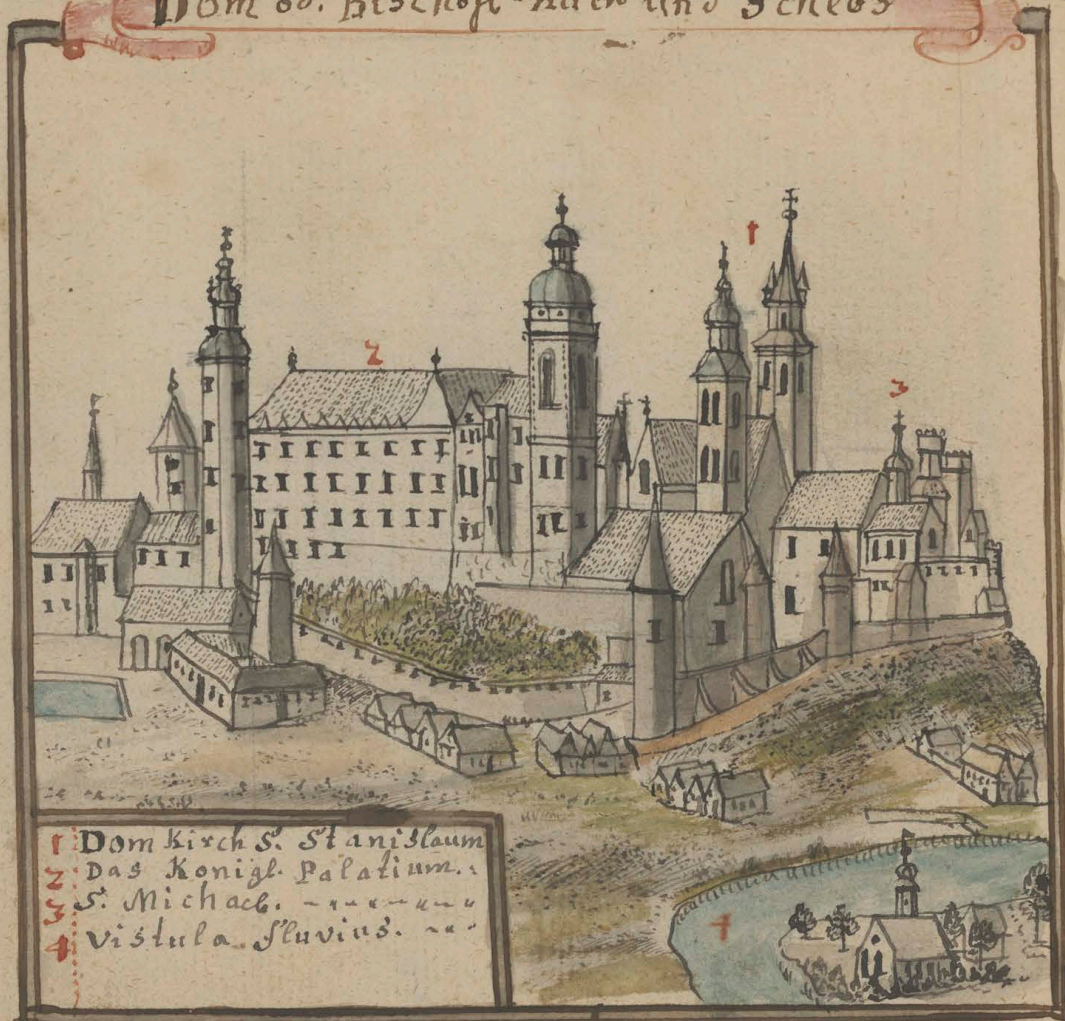 Dom od. Bischofl. und Schlos
2
1
3
4
1 Dom Kirch S. Stanislaum
2 Das Konigl. Palatium.
3 S. Michael.
4 Vistula fluvius.